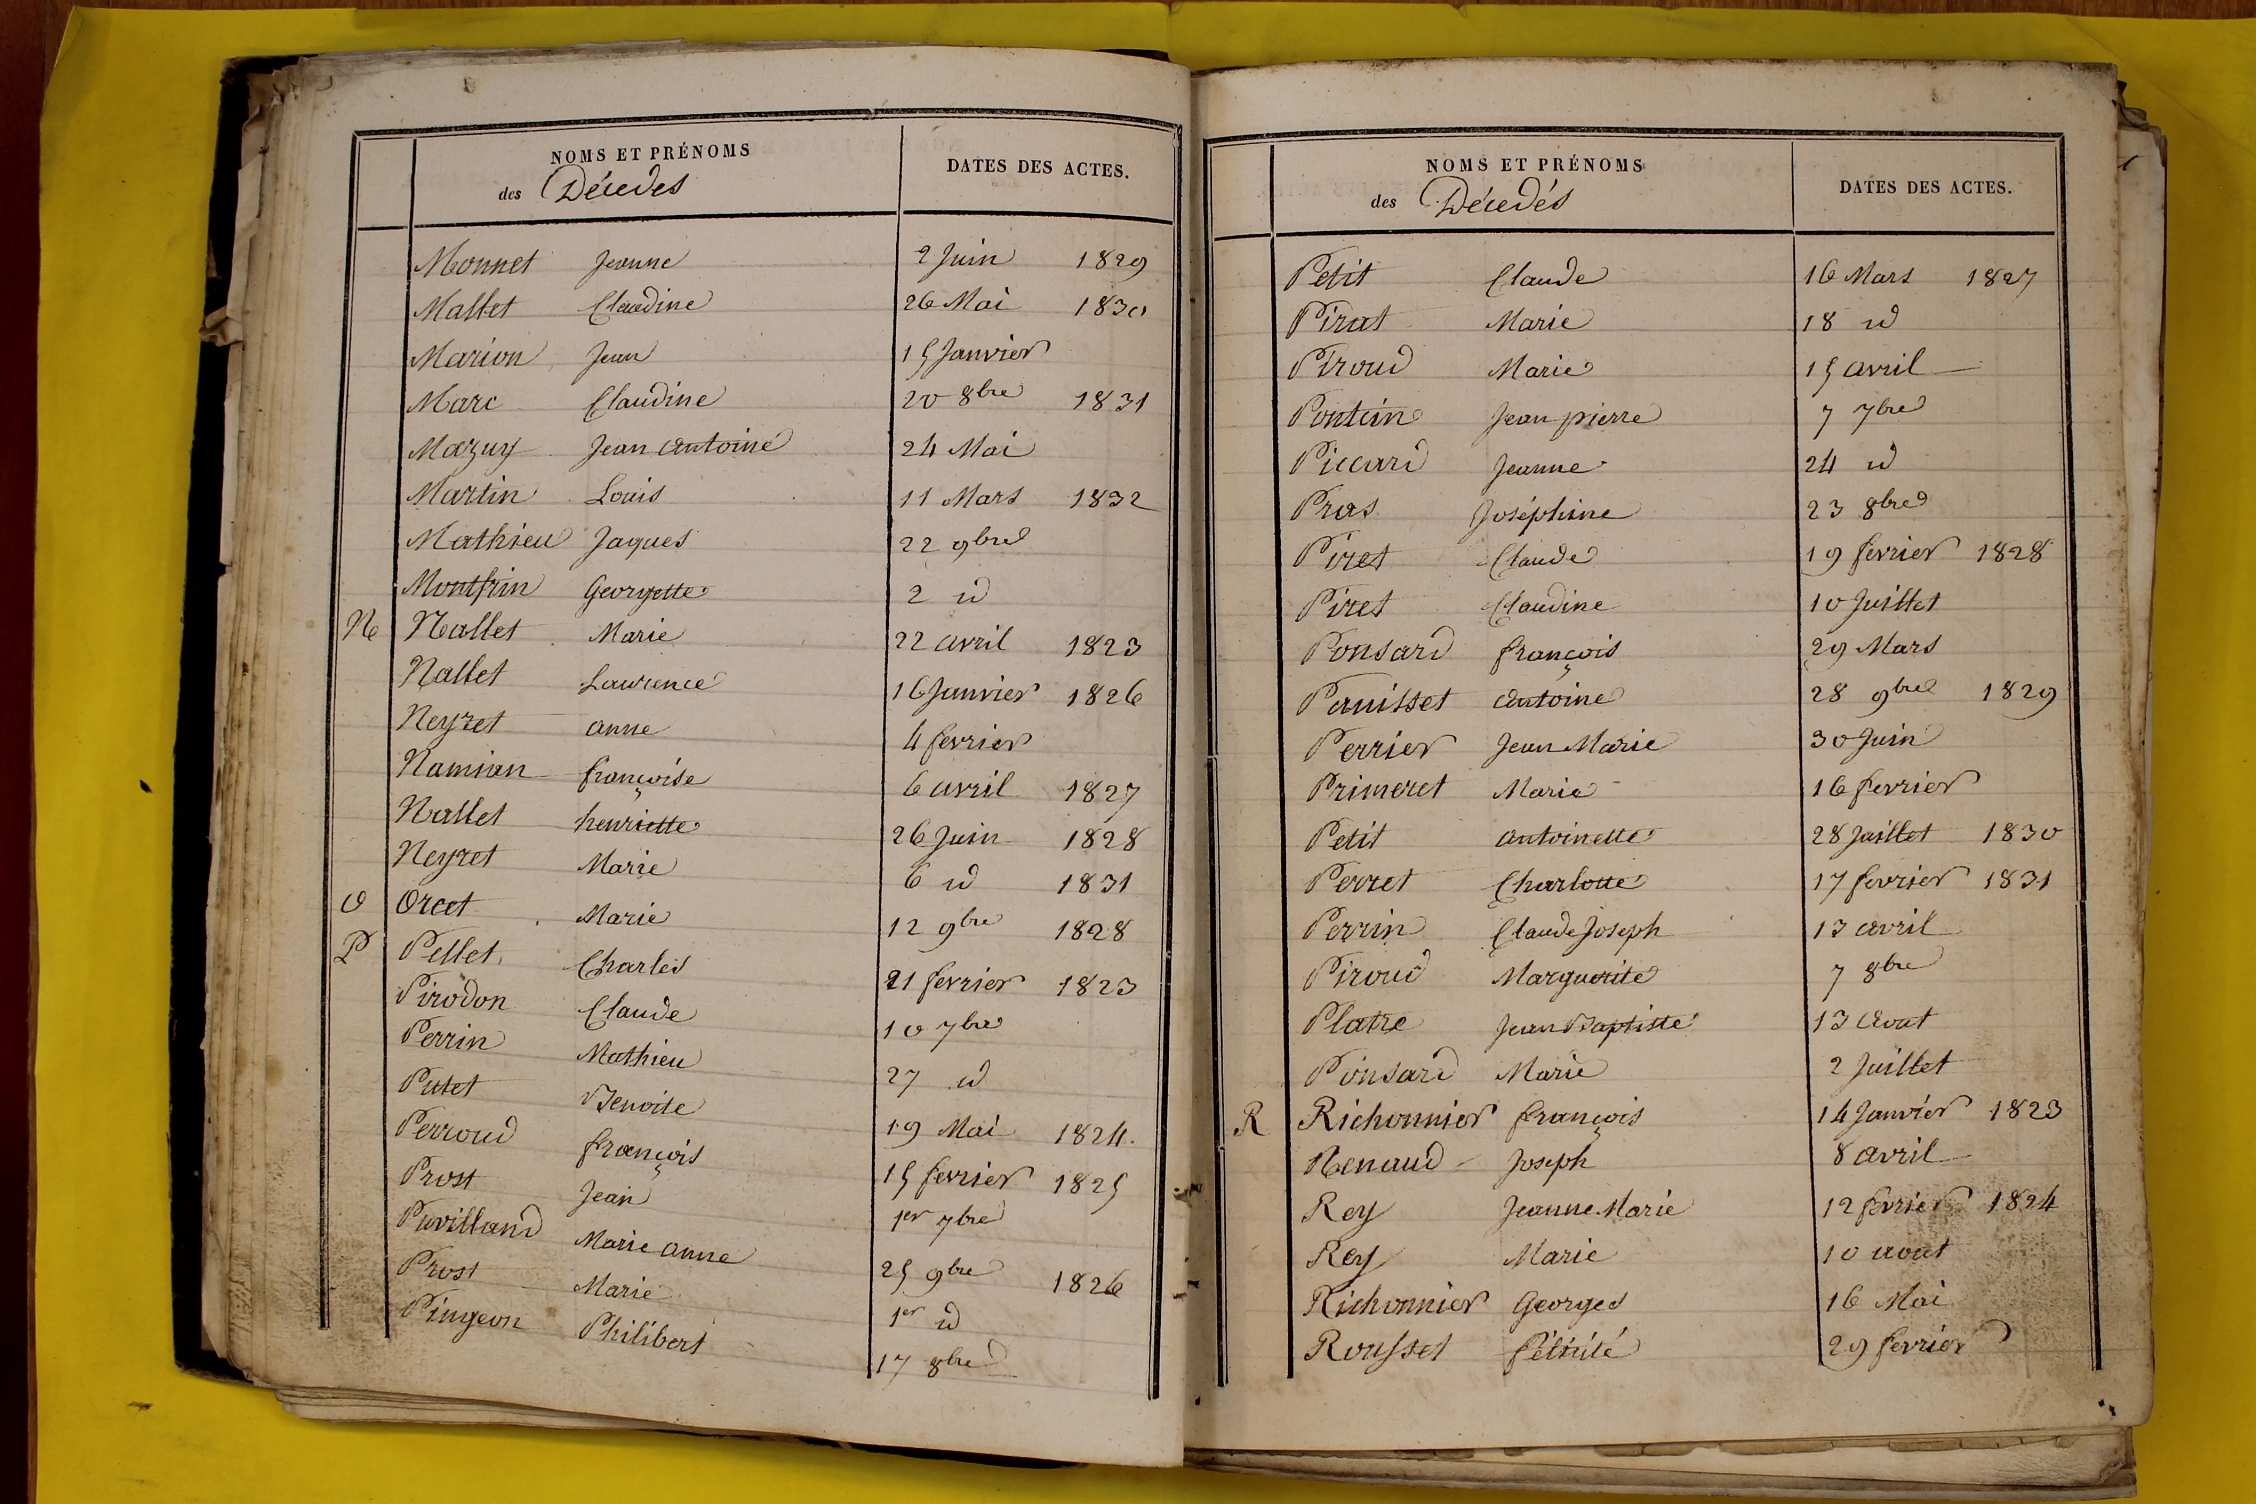 NOMS ET PRÉNOMS
des Décedes
DATES DES ACTES.
Monnet Jeanne 2 Juin 1829
Mallet Claudine 26 Mai 1830
Marion Jean 15 Janvier
Marc Claudine 20 8bre 1831
Mazuy Jean antoine 24 Mai
Martin Louis 11 Mars 1832
Mathieu Jaques 22 9bre
Montfrin Georgette 2 id
N Nallet Marie 22 avril 1823
Nallet Laurence 16 Janvier 1826
Neyret anne 4 fevrier
Namian françoise 6 avril 1827
Nallet henriette 26 Juin 1828
Neyret Marie 6 id 1831
O Orcet Marie 12 9bre 1828
P Pellet Charles 21 fevrier 1823
Pirodon Claude 10 7bre
Perrin Mathieu 27 id
Putet Benoite 19 Mai 1824.
Perroud françois 15 fevrier 1825
Prost Jean 1er 7bre
Puvilland Marie anne 25 9bre 1826
Prost Marie 1er id
Pingeon Philibert 17 8bre
NOMS ET PRÉNOMS
des Décedés
DATES DES ACTES.
Petit Claude 16 Mars 1827
Pirat Marie 18 id
Piroud Marie 15 avril
Pontin Jean pierre 7 7bre
Piccard Jeanne 24 id
Pras Joséphine 23 8bre
Piret Claude 19 fevrier 1828
Piret Claudine 10 Juillet
Ponsard françois 29 Mars
Panisset antoine 28 9bre 1829
Perrier Jean Marie 30 Juin
Primeret Marie 16 fevrier
Petit antoinette 28 Juillet 1830
Perret Charlotte 17 fevrier 1831
Perrin Claude Joseph 13 avril
Piroud Marguerite 7 8bre
Platre Jean Baptiste 13 aout
Ponsard Marie 2 Juillet
R Richonnier françois 14 Janvier 1823
Renaud Joseph 8 avril
Rey Jeanne Marie 12 fevrier 1824
Rey Marie 10 aout
Richonnier Georges 16 Mai
Rousset félicité 29 fevrier